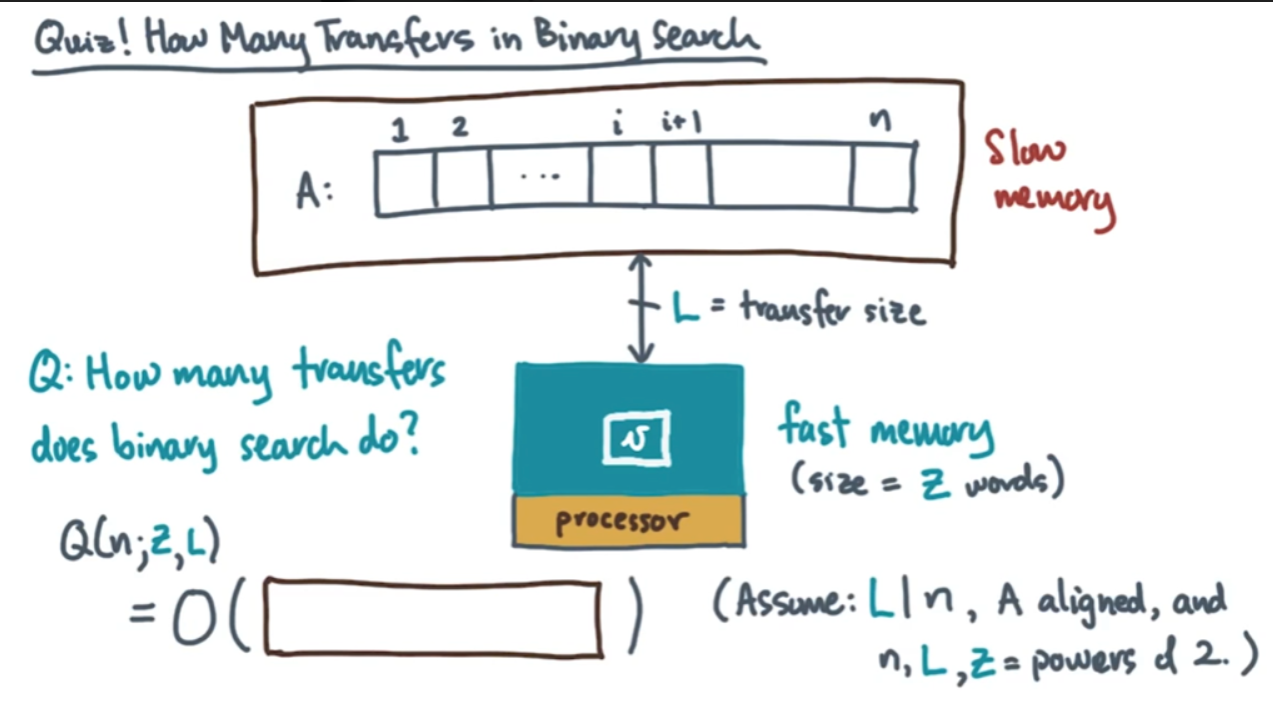 Quiz! How Many Transfers in Binary Search
1 2 i i+1 n
A: ...
Slow
memory
L = transfer size
Q: How many transfers
does binary search do?
v
fast memory
(size = Z words)
processor
Q(n;Z,L)
= O( )
(Assume: L|n, A aligned, and
n, L, Z = powers of 2.)